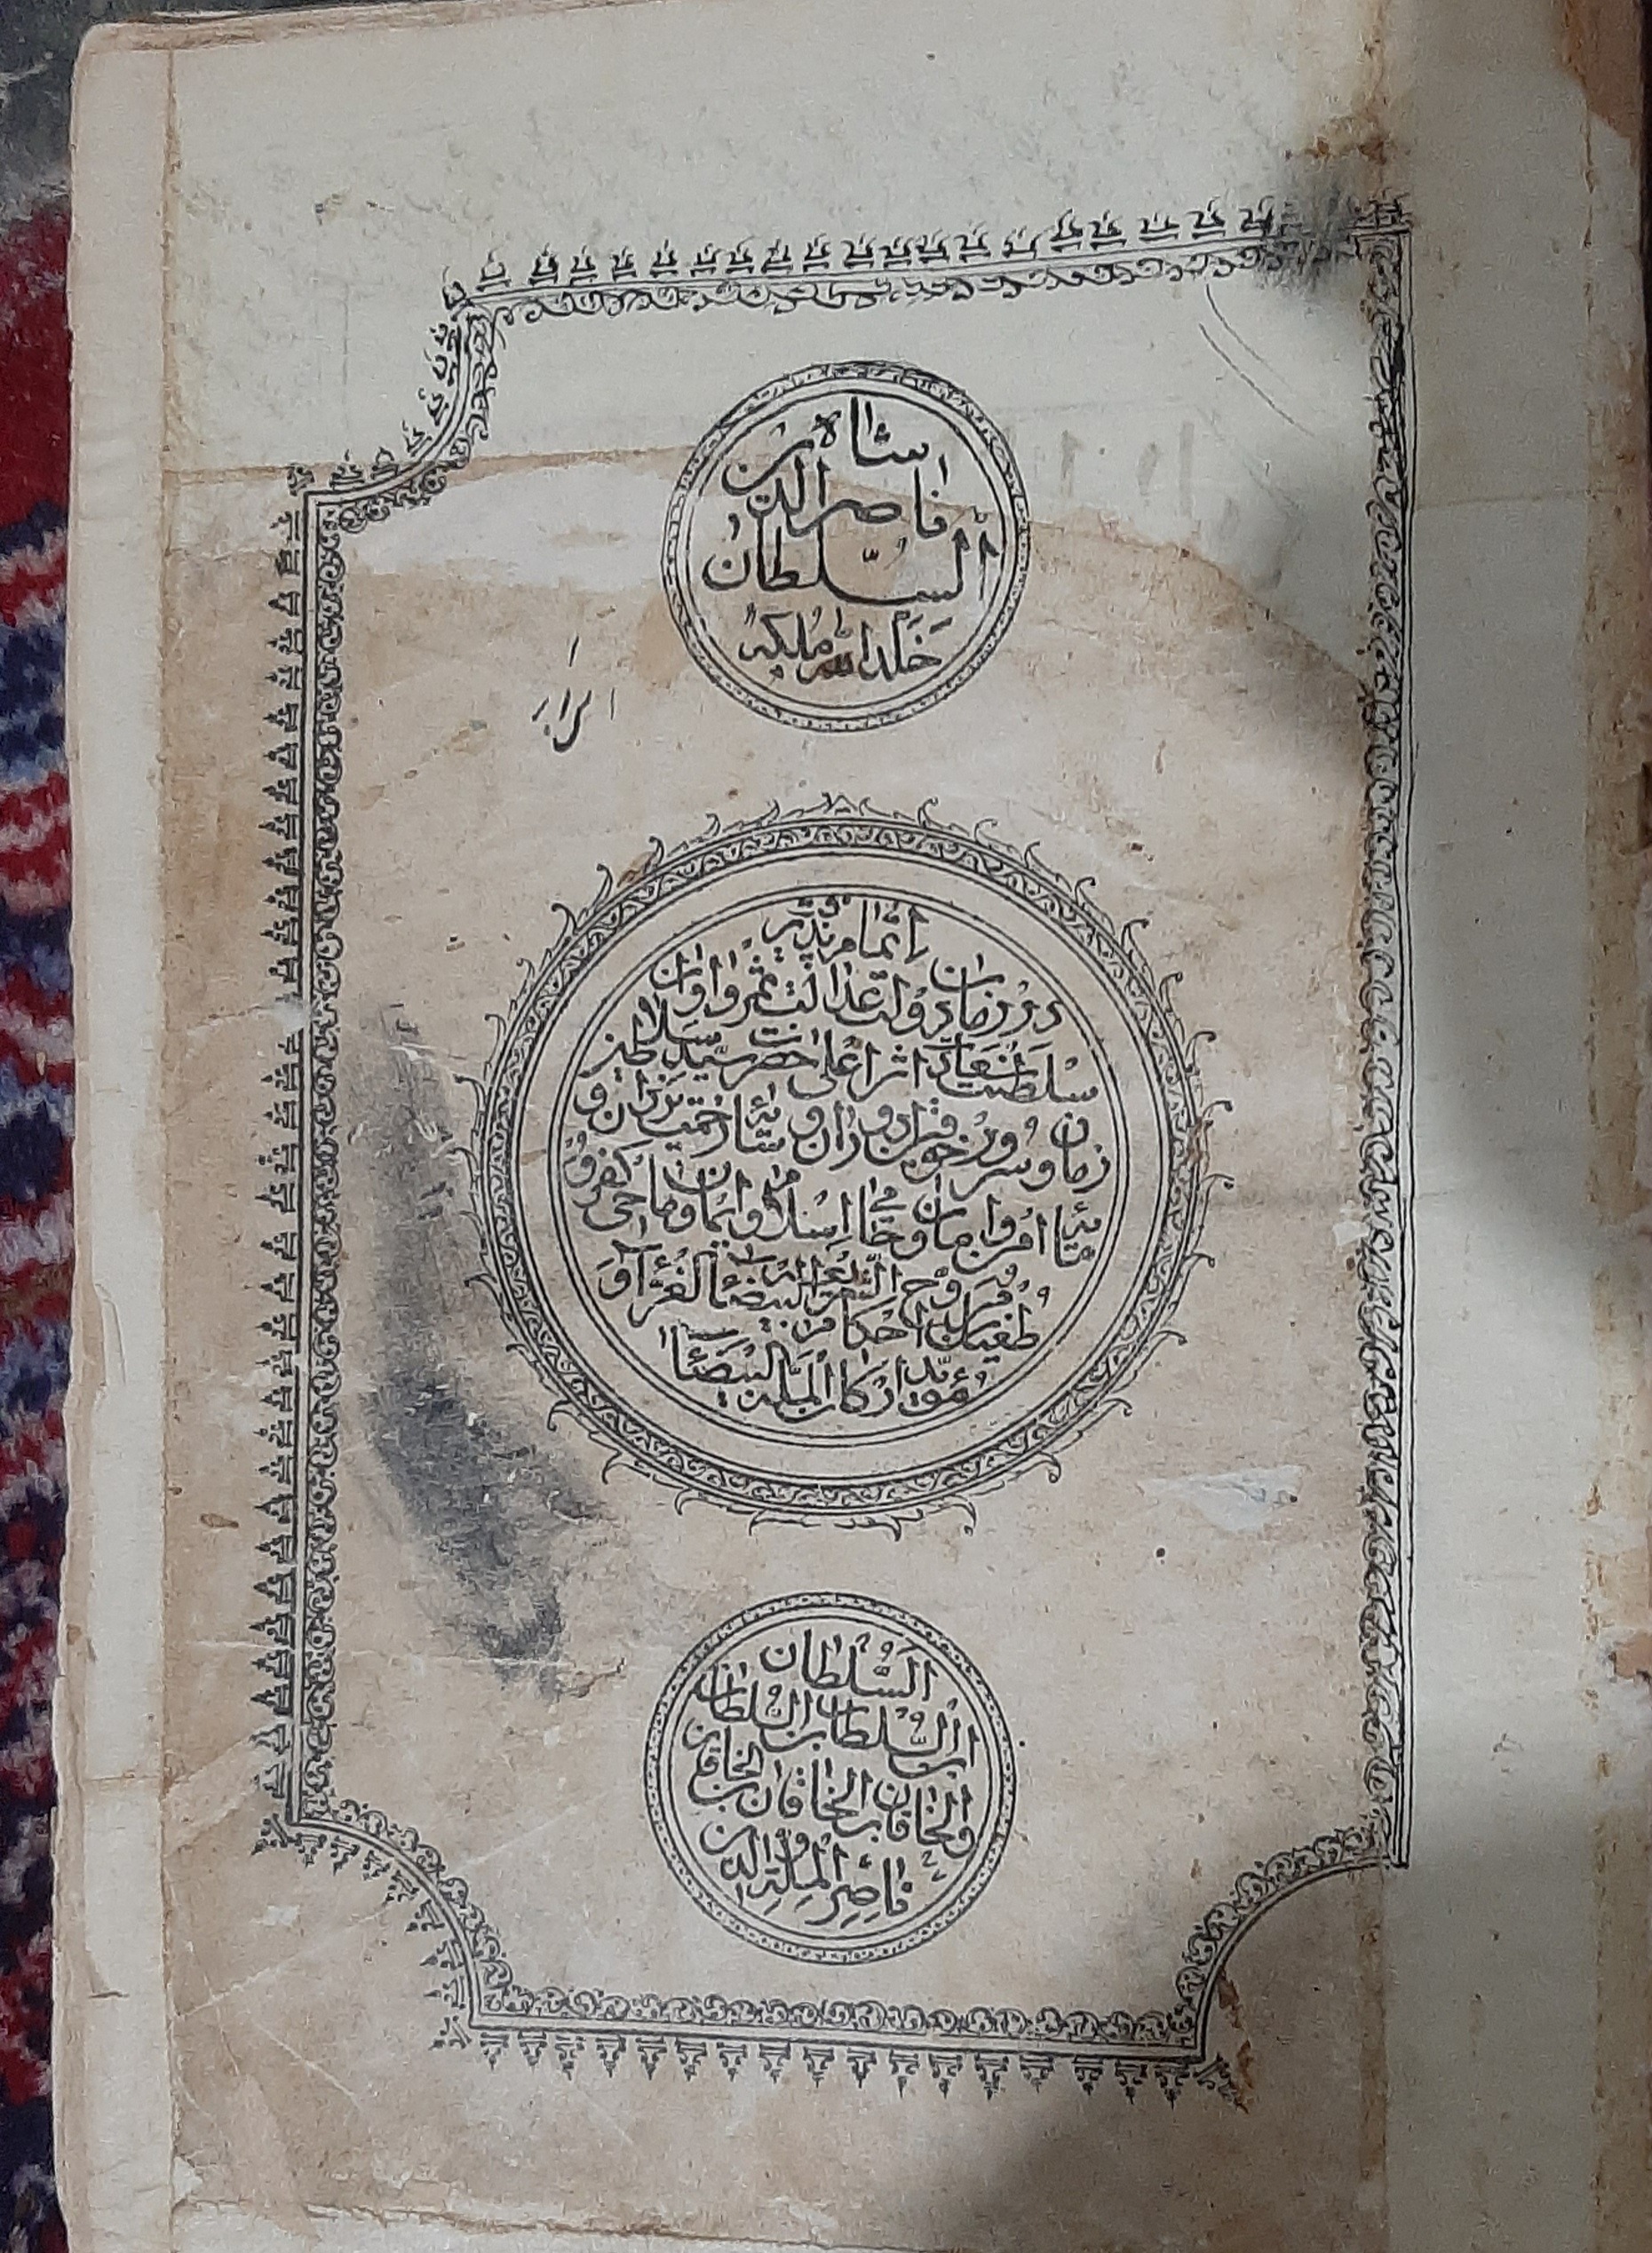 شاه
ناصر الدین
السّلطان
خَلَّدَ الله مُلکَهُ
اتمام پذیرفت
در زمان دولت عدالت ثمر و اوان
سلطنت سعادت اثر اعلی حضرت سیّد سلاطین
زمان و سرور خواقین دوران و سایه رحمت یزدان و
مایه امن و امان و حامی اسلام و ایمان و ماحی کفر و
طغیان مُرَوِّج احکام الشریعة الغرّآء و
مؤیّد ارکان الملّة البیضآء
السّلطان
ابن السّلطان بن السّلطان
و الخاقان بن الخاقان بن الخاقان
ناصِر المِلّة و الدین